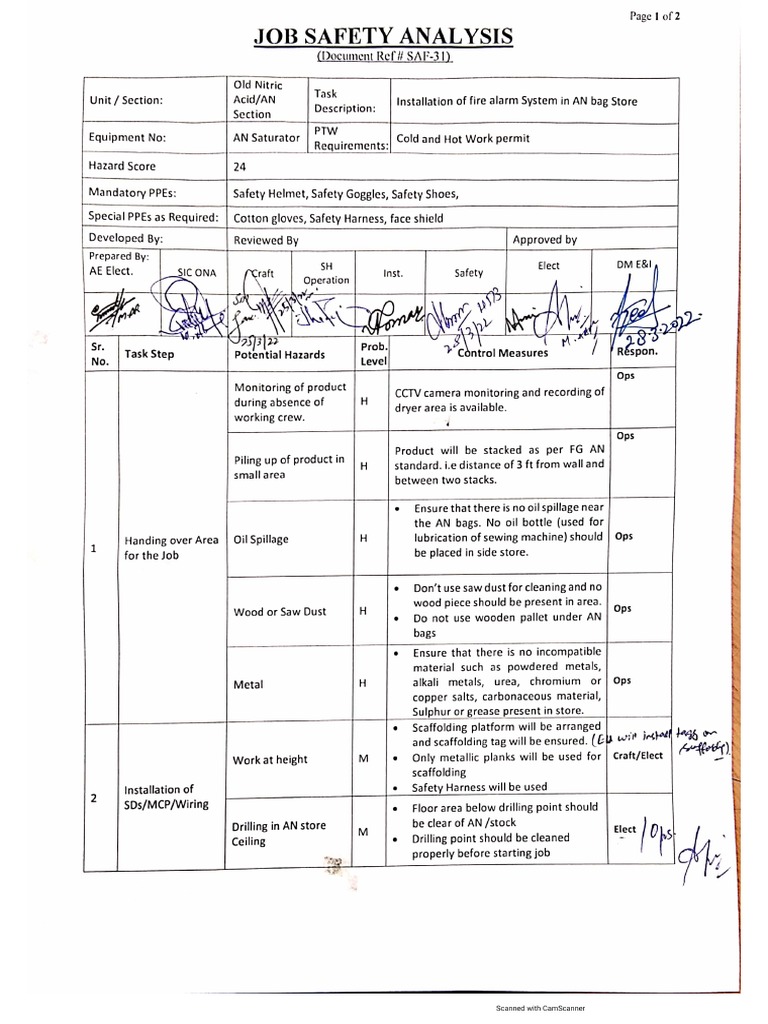 Page 1 of 2
JOB SAFETY ANALYSIS
(Document Ref # SAF-31)
Unit / Section:
Old Nitric
Acid/AN
Section
Task
Description:
Installation of fire alarm System in AN bag Store
Equipment No:
AN Saturator
PTW
Requirements:
Cold and Hot Work permit
Hazard Score
24
Mandatory PPEs:
Safety Helmet, Safety Goggles, Safety Shoes,
Special PPEs as Required:
Cotton gloves, Safety Harness, face shield
Developed By:
Reviewed By
Approved by
Prepared By:
AE Elect.
SIC ONA
Craft
SH
Operation
Inst.
Safety
Elect
DM E&I
25/3/22
25/3/22
28/3/22
28-3-2022
Sr.
No.
Task Step
Potential Hazards
Prob.
Level
Control Measures
Respon.
1
Handing over Area
for the Job
Monitoring of product
during absence of
working crew.
H
CCTV camera monitoring and recording of
dryer area is available.
Ops
Piling up of product in
small area
H
Product will be stacked as per FG AN
standard. i.e distance of 3 ft from wall and
between two stacks.
Ops
Oil Spillage
H
• Ensure that there is no oil spillage near
the AN bags. No oil bottle (used for
lubrication of sewing machine) should
be placed in side store.
Ops
Wood or Saw Dust
H
• Don't use saw dust for cleaning and no
wood piece should be present in area.
• Do not use wooden pallet under AN
bags
Ops
Metal
H
• Ensure that there is no incompatible
material such as powdered metals,
alkali metals, urea, chromium or
copper salts, carbonaceous material,
Sulphur or grease present in store.
Ops
2
Installation of
SDs/MCP/Wiring
Work at height
M
• Scaffolding platform will be arranged
and scaffolding tag will be ensured. (EU will install tags on
scaffolds)
• Only metallic planks will be used for
scaffolding
• Safety Harness will be used
Craft/Elect
Drilling in AN store
Ceiling
M
• Floor area below drilling point should
be clear of AN /stock
• Drilling point should be cleaned
properly before starting job
Elect / Ops
Scanned with CamScanner